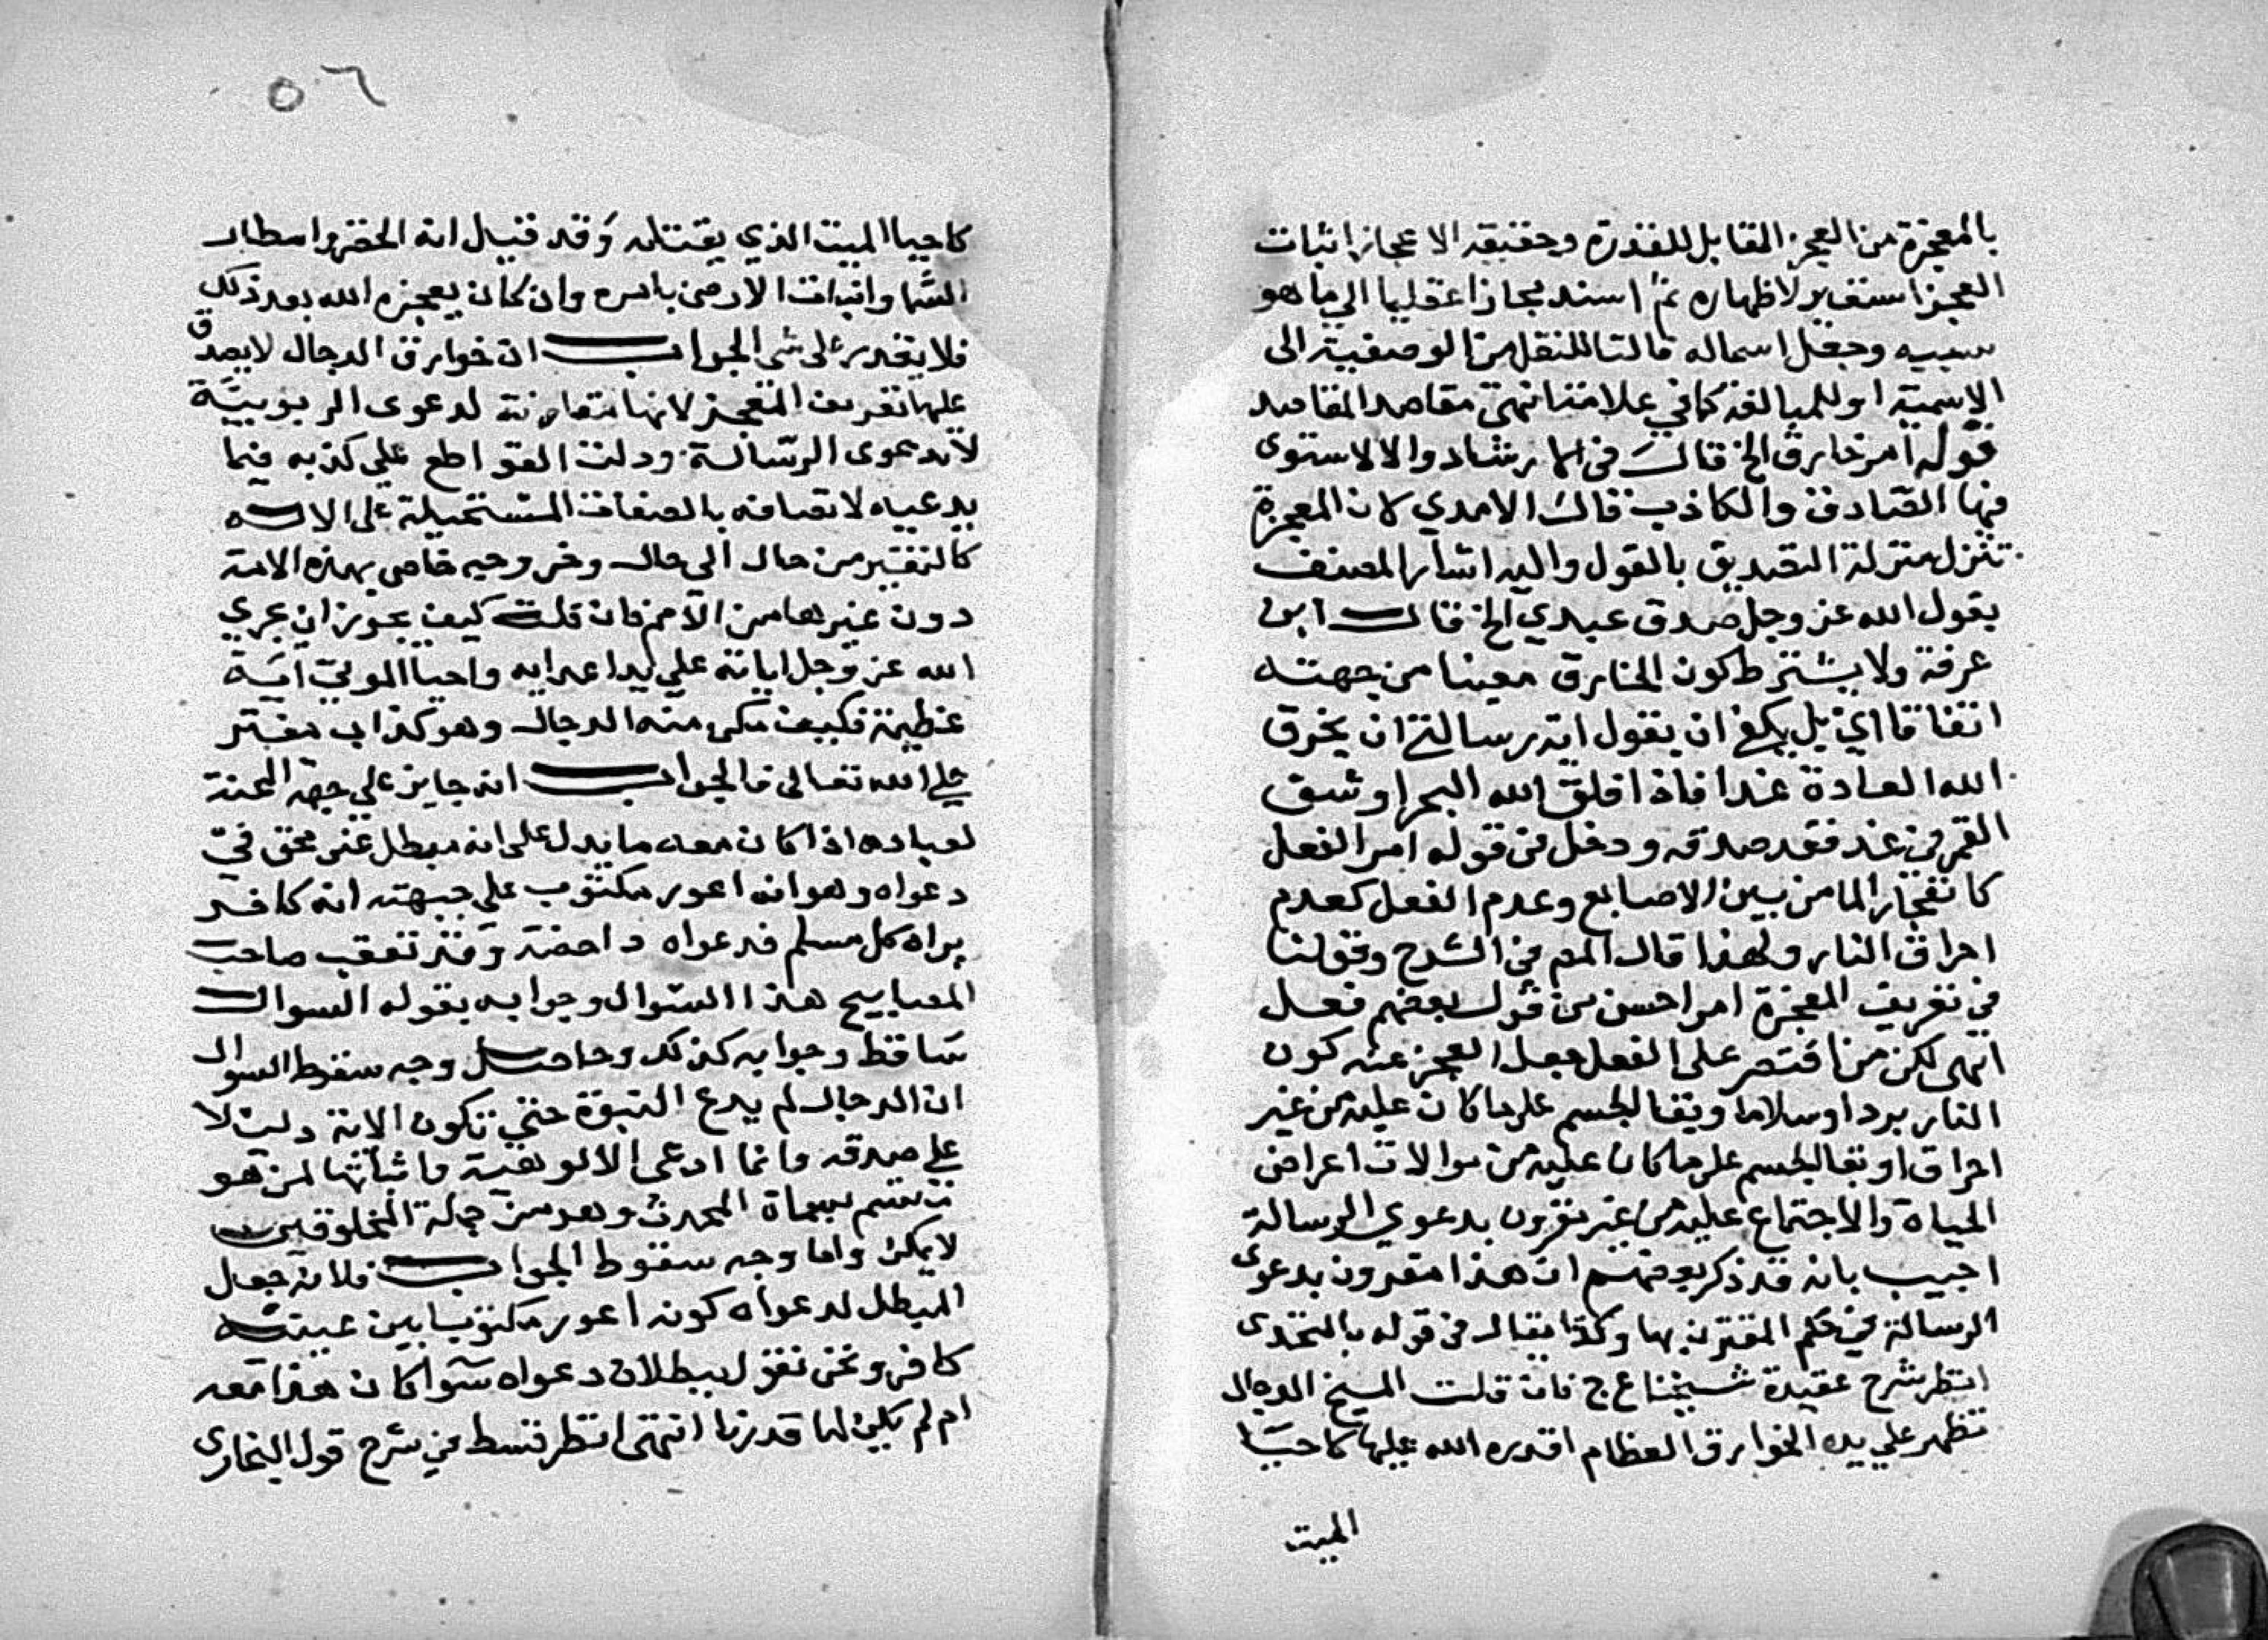 بالمعجزة من العجز المقابل للقدرة وحقيقة الاعجاز اثبات
العجز استعير لاظهاره ثم اسند مجازا عقليا الي ما هو
سببه وجعل اسما له فالتا للنقل من الوصفية الى
الاسمية او للمبالغة كما في علامة انتهى مقاصد المقاصد
قوله امر خارق الخ قال في الارشاد والا لاستوى
فيها الصادق والكاذب قال الامدي لان المعجزة
تنزل منزلة التصديق بالقول واليه اشار المصنف
بقول الله عز وجل صدق عبدي الخ قال ابن
عرفة ولا يشترط كون الخارق معينا من جهته
اتفاقا اي بل يكفي ان يقول اية رسالتي ان يخرق
الله العادة غدا فاذا افلق الله البحر او شق
القمر في غد فقد صدقه ودخل في قوله امر الفعل
كانفجار الما من بين الاصابع وعدم الفعل كعدم
احراق النار ولهذا قال المص في الشرح وقولنا
في تعريف المعجزة امر احسن من قول بعضهم فعل
انتهى لكن من اقتصر على الفعل جعل العجز عنه كون
النار بردا وسلاما وبقا الجسم على ما كان عليه من غير
احراق او بقا الجسم على ما كان عليه من موالات اعراض
الحياة والاجتماع عليه من غير مقرون بدعوي الرسالة
اجيب بانه قد ذكر بعضهم ان هذا مقرون بدعوى
الرسالة في حكم المقترن بها وكذا يقال في قوله بالتحدى
انتظر شرح عقيدة شيخنا ع ج فان قلت المسيخ الدجال
تظهر علي يده الخوارق العظام اقدره الله عليها كاحيا
الميت
٥٦
كاحيا الميت الذي يقتله وقد قيل انه الخضر وامطار
السما وانبات الارض بامره وان كان يعجزه الله بعد ذلك
فلا يقدر على شي الجواب ان خوارق الدجال لا يصدق
عليها تعريف المعجز لانها مقارنة لدعوى الربوبية
لا لدعوى الرسالة ودلت القواطع علي كذبه فيما
يدعيه لاتصافه بالصفات المستحيلة على الاله
كالتغير من حال الى حال وخروجه خاص بهذه الامة
دون غيرها من الامم فان قلت كيف يجوز ان يجري
الله عز وجل اياته علي يد اعدايه واحيا الموتي اية
عظيمة فكيف مكن منه الدجال وهو كذاب مفتر
علي الله تعالى فالجواب انه جايز علي جهة المحنة
لعباده اذا كان معه ما يدل على انه مبطل غير محق في
دعواه وهو انه اعور مكتوب علي جبهته انه كافر
يراه كل مسلم فدعواه داحضة وقد تعقب صاحب
المصابيح هذا السوال وجوابه بقوله السوال
ساقط وجوابه كذلك وحاصل وجه سقوط السوال
ان الدجال لم يدع النبوة حتي تكون الاية دلت لا
علي صدقه وانما ادعى الالوهية واثباتها لمن هو
متسم بسماة المحدث وهو من جملة المخلوقين
لا يمكن واما وجه سقوط الجواب فلانه جعل
المبطل لدعواه كونه اعور مكتوبا بين عينيه
كافر ونحن نقول ببطلان دعواه سوا كان هذا معه
ام لم يكن لما قدرنا انتهى انتظر قسط في شرح قول البخارى